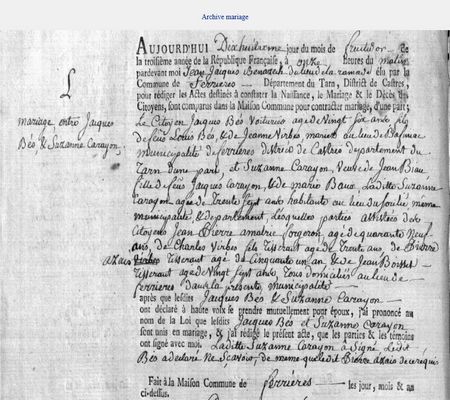 Archive mariage
AUJOURD'HUI Dixhuitieme jour du mois de fructidor de
la troisième année de la République Française, à onze heures du matin
pardevant moi Jean Jaques élu par la
Commune de ferrieres Département du Tarn, District de Castres,
pour rédiger les Actes destinés à constater la Naissance, le Mariage & le Décès des
Citoyens, sont comparus dans la Maison Commune pour contracter mariage, d'une part;
Le Citoyen Jaques Bès Voiturier agé de Vingt six ans fils
de feus Louis Bès, & de Jeanne Virbes, mariés au lieu de
municipalité de ferrières district de Castres département du
Tarn d'une part, et Suzanne Carayon, Veuve de Jean Biau
fille de feus Jaques Carayon, & de marie Baux, Ladite Suzanne
Carayon agée de Trente sept ans habitante au lieu du même
municipalité, & département, Lesquelles parties assistées des
Citoyens Jean Pierre forgeron, agé de quarante Neuf
ans, de Charles Virbes fils Tisserant agé de Trente ans, de Pierre
azais Tisserant agé de Cinquante un an & de Jean
Tisserant agé de Vingt sept ans, Tous domiciliés au lieu de
ferrières dans la présente municipalité
après que lesdits Jaques Bès & Suzanne Carayon
ont déclaré à haute voix se prendre mutuellement pour époux, j'ai prononcé au
nom de la Loi que lesdits Jaques Bès et Suzanne Carayon
sont unis en mariage, & j'ai rédigé le présent acte, que les parties & les témoins
ont signé avec moi Ladite Suzanne Carayon a signé Ledit
Bès a déclaré Ne Scavoir, de même que ledit Pierre azais de ce requis
Fait à la Maison Commune de ferrières les jour, mois & an
ci-dessus.
mariage entre Jaques
Bès & Suzanne Carayon